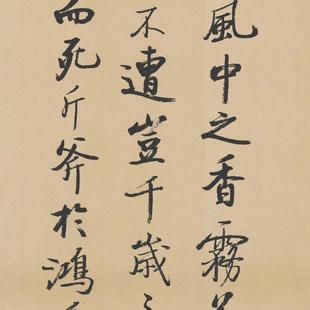 風中之香霧
不遭豈千歲
而死斤斧於鴻